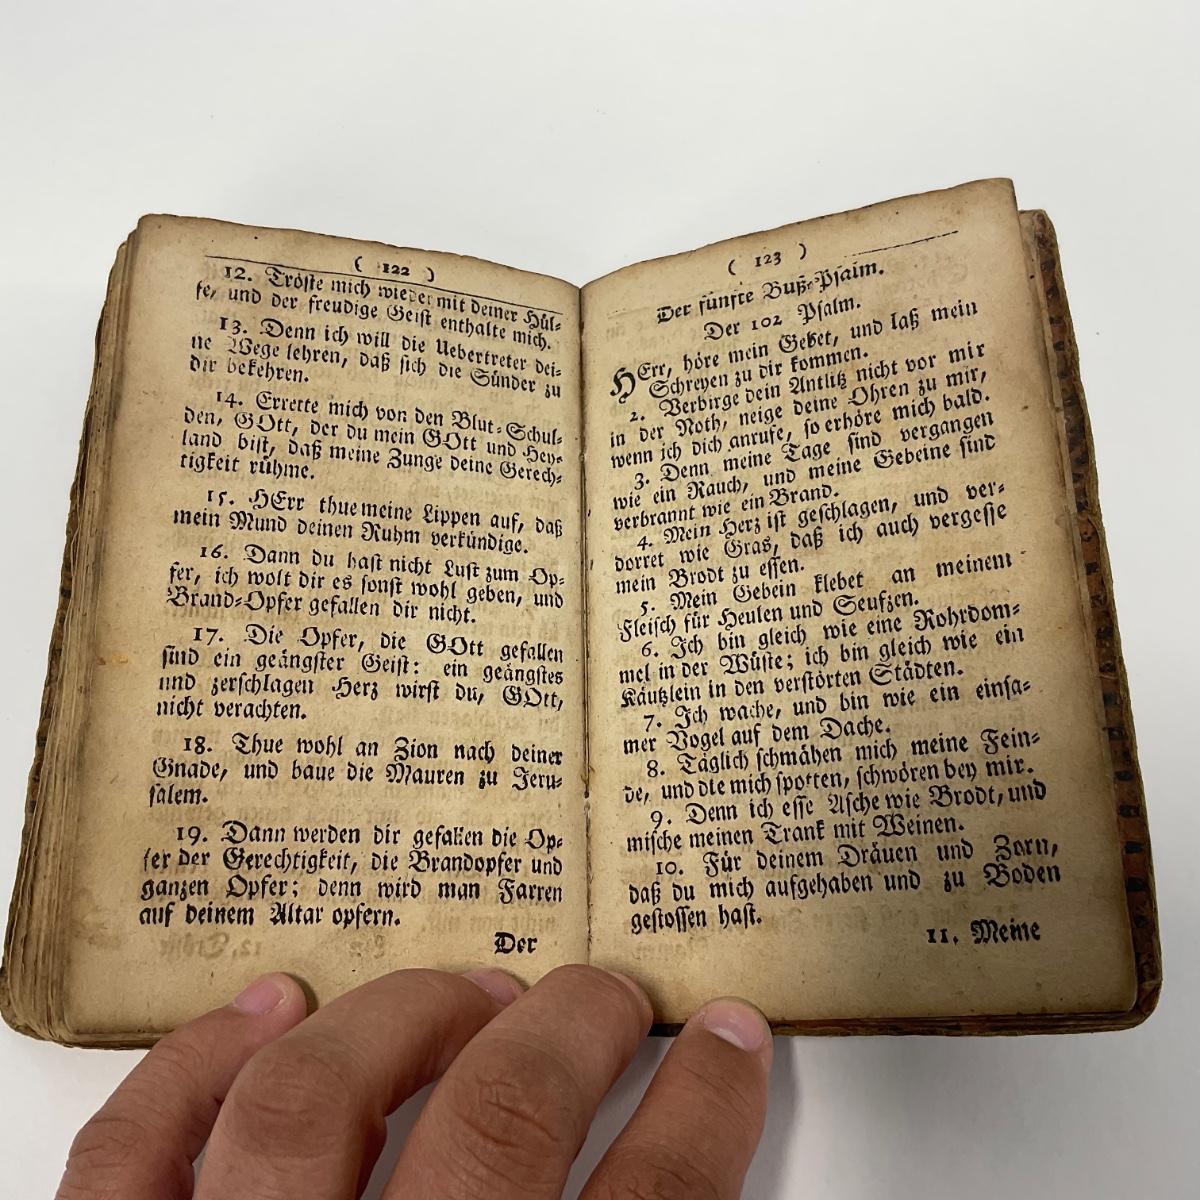 ( 122 )
12. Tröste mich wieder mit deiner Hül⸗
fe, und der freudige Geist enthalte mich.
13. Denn ich will die Uebertreter dei⸗
ne Wege lehren, daß sich die Sünder zu
dir bekehren.
14. Errette mich von den Blut⸗Schul⸗
den, GOtt, der du mein GOtt und Hey⸗
land bist, daß meine Zunge deine Gerech⸗
tigkeit rühme.
15. HErr thue meine Lippen auf, daß
mein Mund deinen Ruhm verkündige.
16. Dann du hast nicht Lust zum Op⸗
fer, ich wolt dir es sonst wohl geben, und
Brand⸗Opfer gefallen dir nicht.
17. Die Opfer, die GOtt gefallen
sind ein geängster Geist: ein geängstes
und zerschlagen Herz wirst du, GOtt,
nicht verachten.
18. Thue wohl an Zion nach deiner
Gnade, und baue die Mauren zu Jeru⸗
salem.
19. Dann werden dir gefallen die Op⸗
fer der Gerechtigkeit, die Brandopfer und
ganzen Opfer; denn wird man Farren
auf deinem Altar opfern.
Der
( 123 )
Der fünfte Buß⸗Psalm.
Der 102 Psalm.
HErr, höre mein Gebet, und laß mein
Schreyen zu dir kommen.
2. Verbirge dein Antlitz nicht vor mir
in der Noth, neige deine Ohren zu mir,
wenn ich dich anrufe, so erhöre mich bald.
3. Denn meine Tage sind vergangen
wie ein Rauch, und meine Gebeine sind
verbrannt wie ein Brand.
4. Mein Herz ist geschlagen, und ver⸗
dorret wie Gras, daß ich auch vergesse
mein Brodt zu essen.
5. Mein Gebein klebet an meinem
Fleisch für Heulen und Seufzen.
6. Ich bin gleich wie eine Rohrdom⸗
mel in der Wüste; ich bin gleich wie ein
Käutzlein in den verstörten Städten.
7. Ich wache, und bin wie ein einsa⸗
mer Vogel auf dem Dache.
8. Täglich schmähen mich meine Fein⸗
de, und die mich spotten, schwören bey mir.
9. Denn ich esse Asche wie Brodt, und
mische meinen Trank mit Weinen.
10. Für deinem Dräuen und Zorn,
daß du mich aufgehaben und zu Boden
gestossen hast.
11. Meine